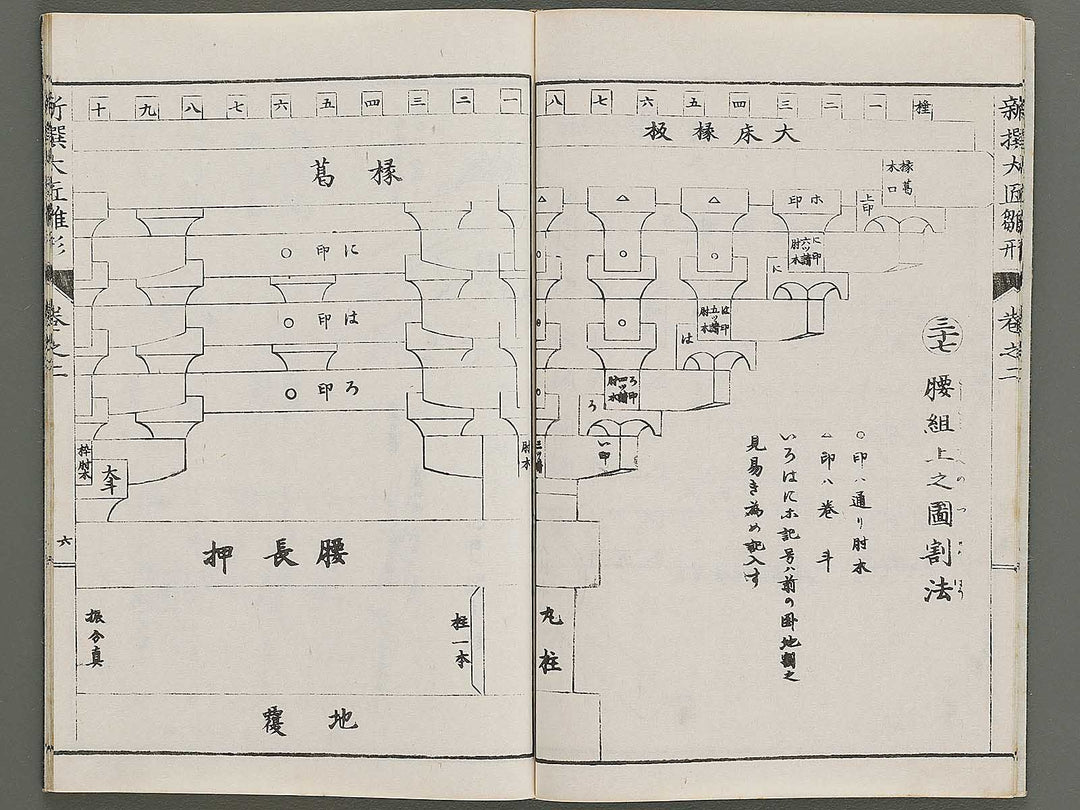 新撰大匠雛形
巻之二
三十七
腰組上之圖割法
○印ハ通り肘木
△印ハ巻斗
いろはにホ記号ハ前の圖地割之
見易き為め記入す
橦
一
二
三
四
五
六
七
八
大床椽板
椽葛
木口
上印
ホ印
に印
六ツ譜
肘木
に
は印
五ツ譜
肘木
は
ろ印
四ツ譜
肘木
ろ
い印
三ツ譜
肘木
△
△
△
○
○
○
丸柱
一
二
三
四
五
六
七
八
九
十
椽葛
に印○
は印○
ろ印○
大斗
枠肘木
腰長押
柱一本
振分真
地覆
新撰大匠雛形
巻之二
六